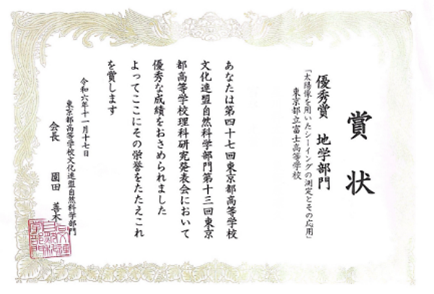 賞状
優秀賞 地学部門
「太陽像を用いたシーイングの測定とその応用」
東京都立富士高等学校
あなたは第四十七回東京都高等学校
文化連盟自然科学部門第十三回東京
都高等学校理科研究発表会において
優秀な成績をおさめられました
よってここにその栄誉をたたえこれ
を賞します
令和六年十一月十七日
東京都高等学校文化連盟自然科学部門
会長 園田 喜本